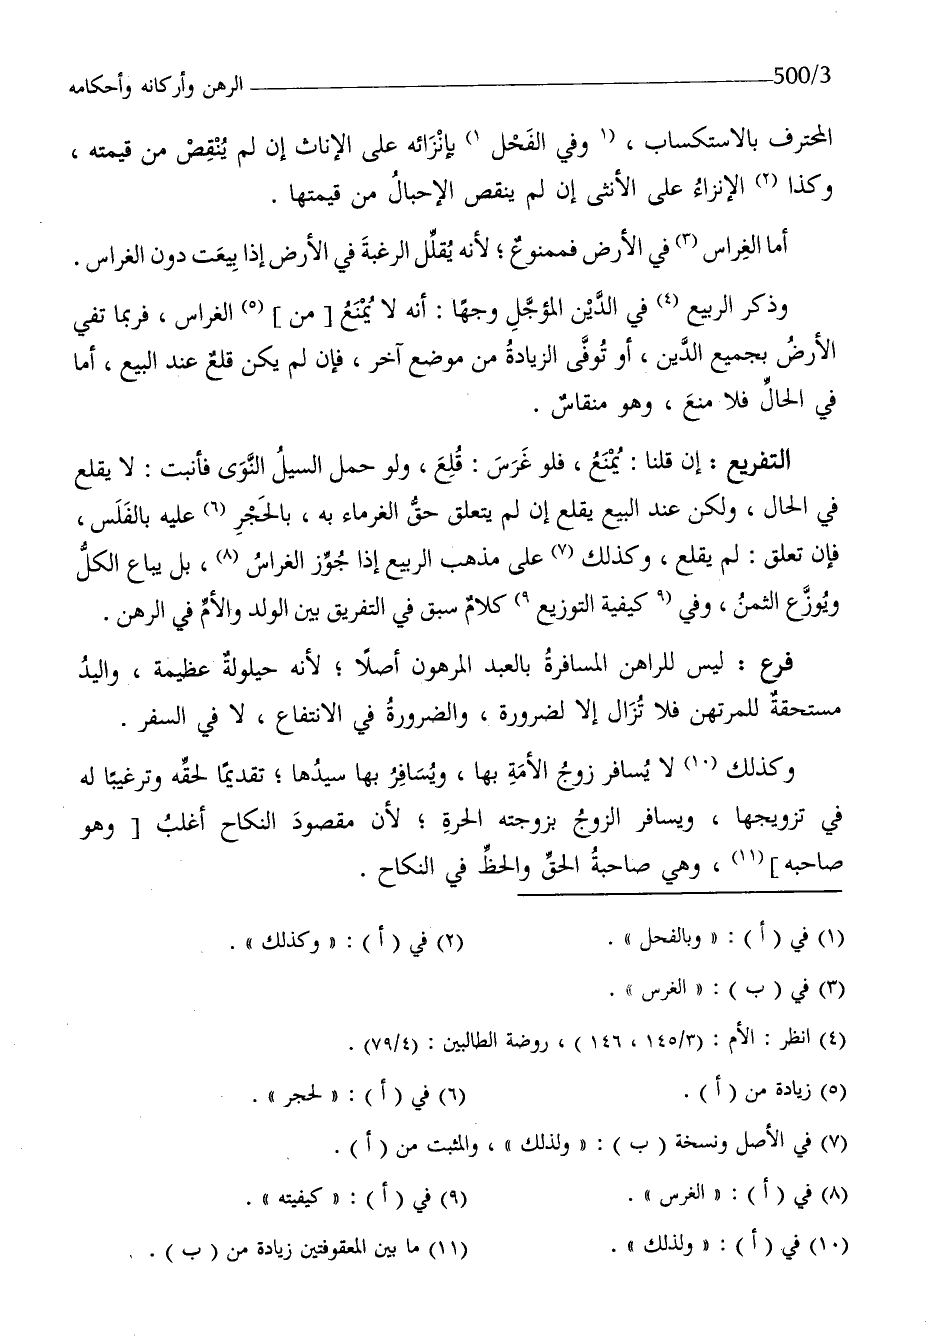 500/3 ــــــــــ الرهن وأركانه وأحكامه
المحترف بالاستكساب ، (١ وفي الفَحْل ١) بإنْزَائه على الإناث إن لم يُنْقِصْ من قيمته ،
وكذا (٢) الإنزاءُ على الأنثى إن لم ينقص الإحبالُ من قيمتها .
أما الغِراس (٣) في الأرض فممنوعٌ ؛ لأنه يُقلِّل الرغبةَ في الأرض إذا بِيعَت دون الغراس .
وذكر الربيع (٤) في الدَّيْن المؤجَّلِ وجهًا : أنه لا يُمْنَعُ [ من ] (٥) الغراس ، فربما تفي
الأرضُ بجميع الدَّين ، أو تُوفَّى الزيادةُ من موضع آخر ، فإن لم يكن قلعٌ عند البيع ، أما
في الحالِّ فلا منعَ ، وهو منقاسٌ .
التفريع : إن قلنا : يُمْنَعُ ، فلو غَرَسَ : قُلِعَ ، ولو حمل السيلُ النَّوَى فأنبت : لا يقلع
في الحال ، ولكن عند البيع يقلع إن لم يتعلق حقُّ الغرماء به ، بالحَجْرِ (٦) عليه بالفَلَس ،
فإن تعلق : لم يقلع ، وكذلك (٧) على مذهب الربيع إذا جُوِّز الغراسُ (٨) ، بل يباع الكلُّ
ويُوزَّع الثمنُ ، وفي (٩ كيفية التوزيع ٩) كلامٌ سبق في التفريق بين الولد والأمِّ في الرهن .
فرع : ليس للراهن المسافرةُ بالعبد المرهون أصلًا ؛ لأنه حيلولةٌ عظيمة ، واليدُ
مستحقةٌ للمرتهن فلا تُزَال إلا لضرورة ، والضرورةُ في الانتفاع ، لا في السفر .
وكذلك (١٠) لا يُسافر زوجُ الأمَةِ بها ، ويُسَافِرُ بها سيدُها ؛ تقديمًا لحقِّه وترغيبًا له
في تزويجها ، ويسافر الزوجُ بزوجته الحرةِ ؛ لأن مقصودَ النكاح أغلبُ [ وهو
صاحبه ] (١١) ، وهي صاحبةُ الحقِّ والحظِّ في النكاح .
(١) في ( أ ) : « وبالفحل » . (٢) في ( أ ) : « وكذلك » .
(٣) في ( ب ) : « الغرس » .
(٤) انظر : الأم : (١٤٥/٣ ، ١٤٦ ) ، روضة الطالبين : (٧٩/٤) .
(٥) زيادة من ( أ ) . (٦) في ( أ ) : « لحجر » .
(٧) في الأصل ونسخة ( ب ) : « ولذلك » ، والمثبت من ( أ ) .
(٨) في ( أ ) : « الغرس » . (٩) في ( أ ) : « كيفيته » .
(١٠) في ( أ ) : « ولذلك » . (١١) ما بين المعقوفتين زيادة من ( ب ) .